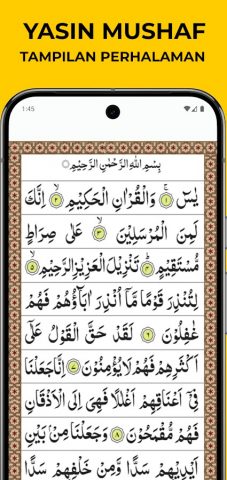 YASIN MUSHAF
TAMPILAN PERHALAMAN
1:45
بِسْمِ اللّٰهِ الرَّحْمٰنِ الرَّحِيْمِ
يٰسۤ ۚ ۝١ وَالْقُرْاٰنِ الْحَكِيْمِۙ ۝٢ اِنَّكَ
لَمِنَ الْمُرْسَلِيْنَۙ ۝٣ عَلٰى صِرَاطٍ
مُّسْتَقِيْمٍۗ ۝٤ تَنْزِيْلَ الْعَزِيْزِ الرَّحِيْمِۙ ۝٥
لِتُنْذِرَ قَوْمًا مَّآ اُنْذِرَ اٰبَاۤؤُهُمْ فَهُمْ
غٰفِلُوْنَ ۝٦ لَقَدْ حَقَّ الْقَوْلُ عَلٰٓى
اَكْثَرِهِمْ فَهُمْ لَا يُؤْمِنُوْنَ ۝٧ اِنَّا جَعَلْنَا
فِيْٓ اَعْنَاقِهِمْ اَغْلٰلًا فَهِيَ اِلَى الْاَذْقَانِ
فَهُمْ مُّقْمَحُوْنَ ۝٨ وَجَعَلْنَا مِنْۢ بَيْنِ
اَيْدِيْهِمْ سَدًّا وَّمِنْ خَلْفِهِمْ سَدًّا